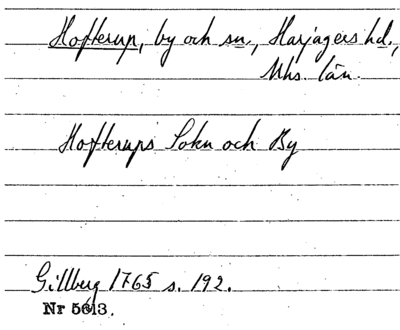 Hofterup, by och sn., Harjagers hd.,
Mhs. län.
Hofterups Sokn och By
Gillberg 1765 s. 192.
Nr 5613.